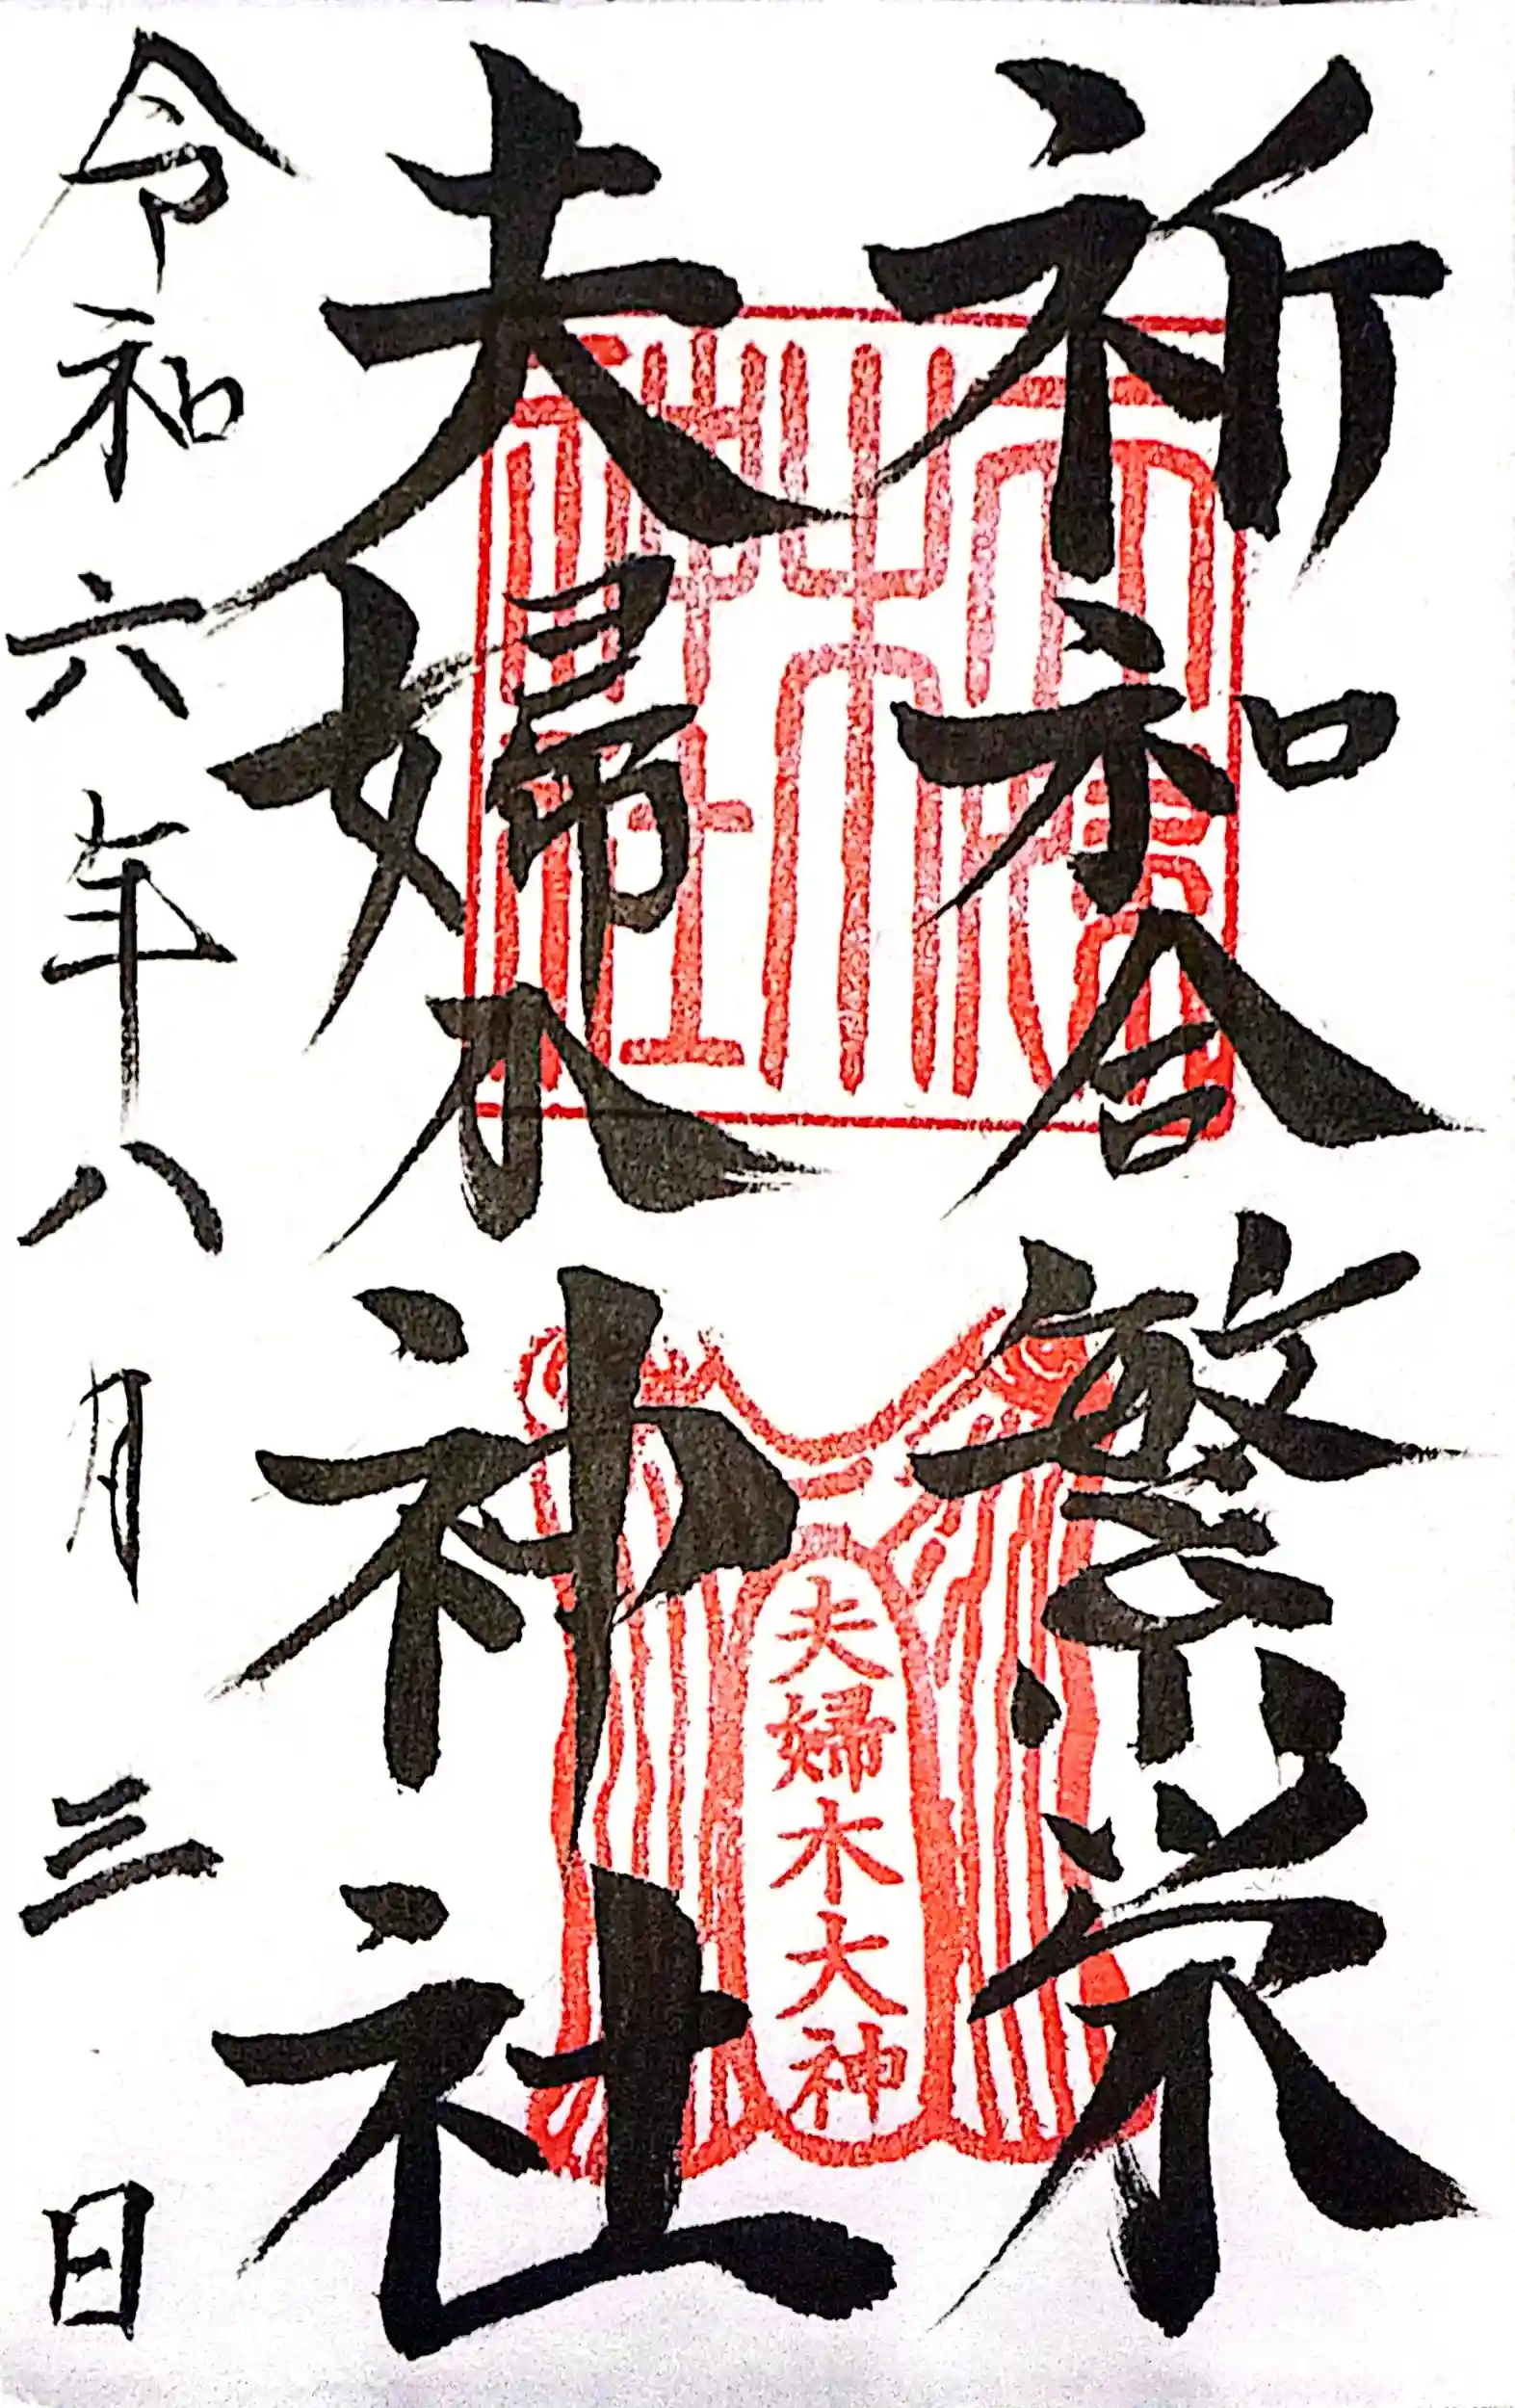 祈和合繁栄
夫婦木神社
令和六年八月三日
夫婦木大神